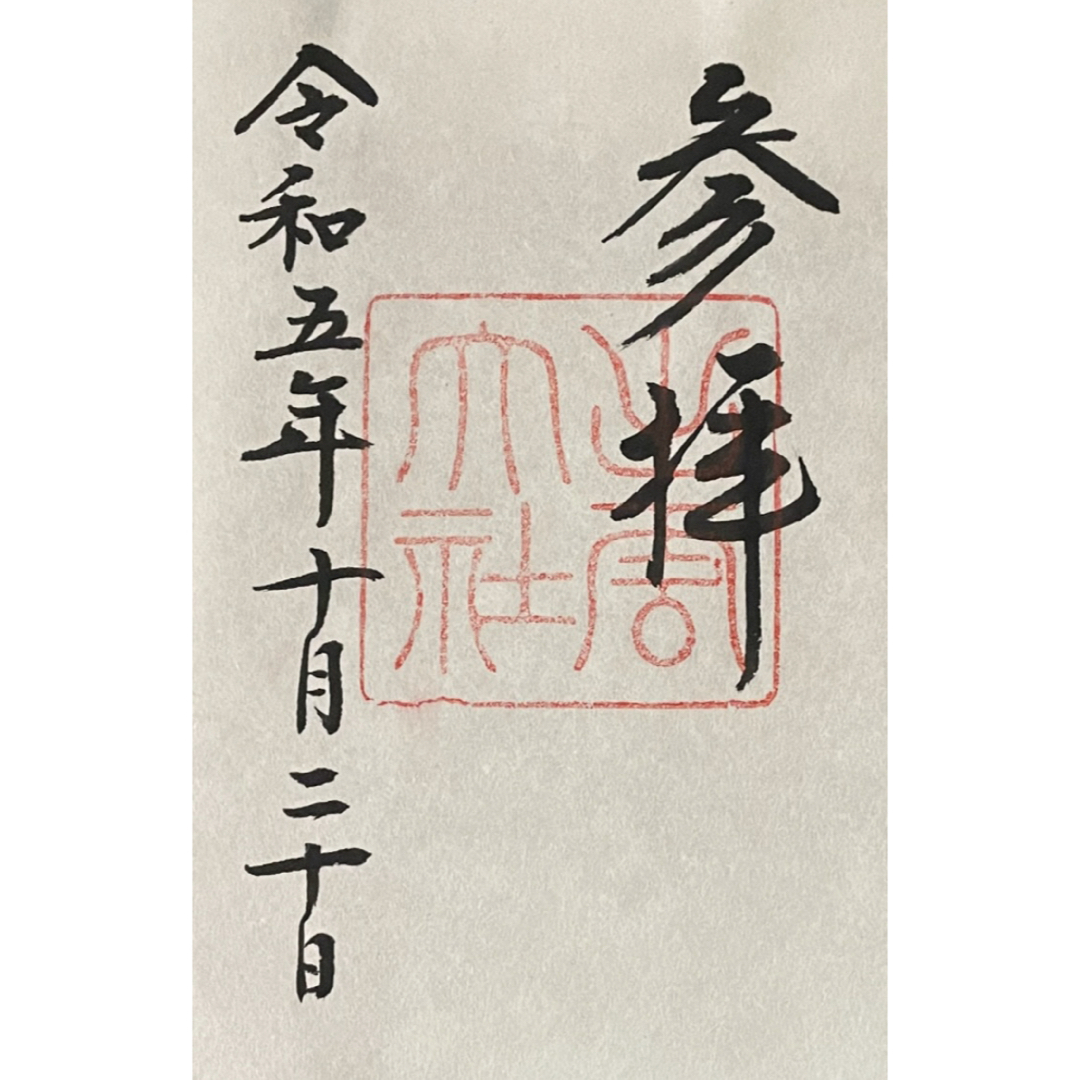 参拝
出雲
大社
令和五年十月二十日